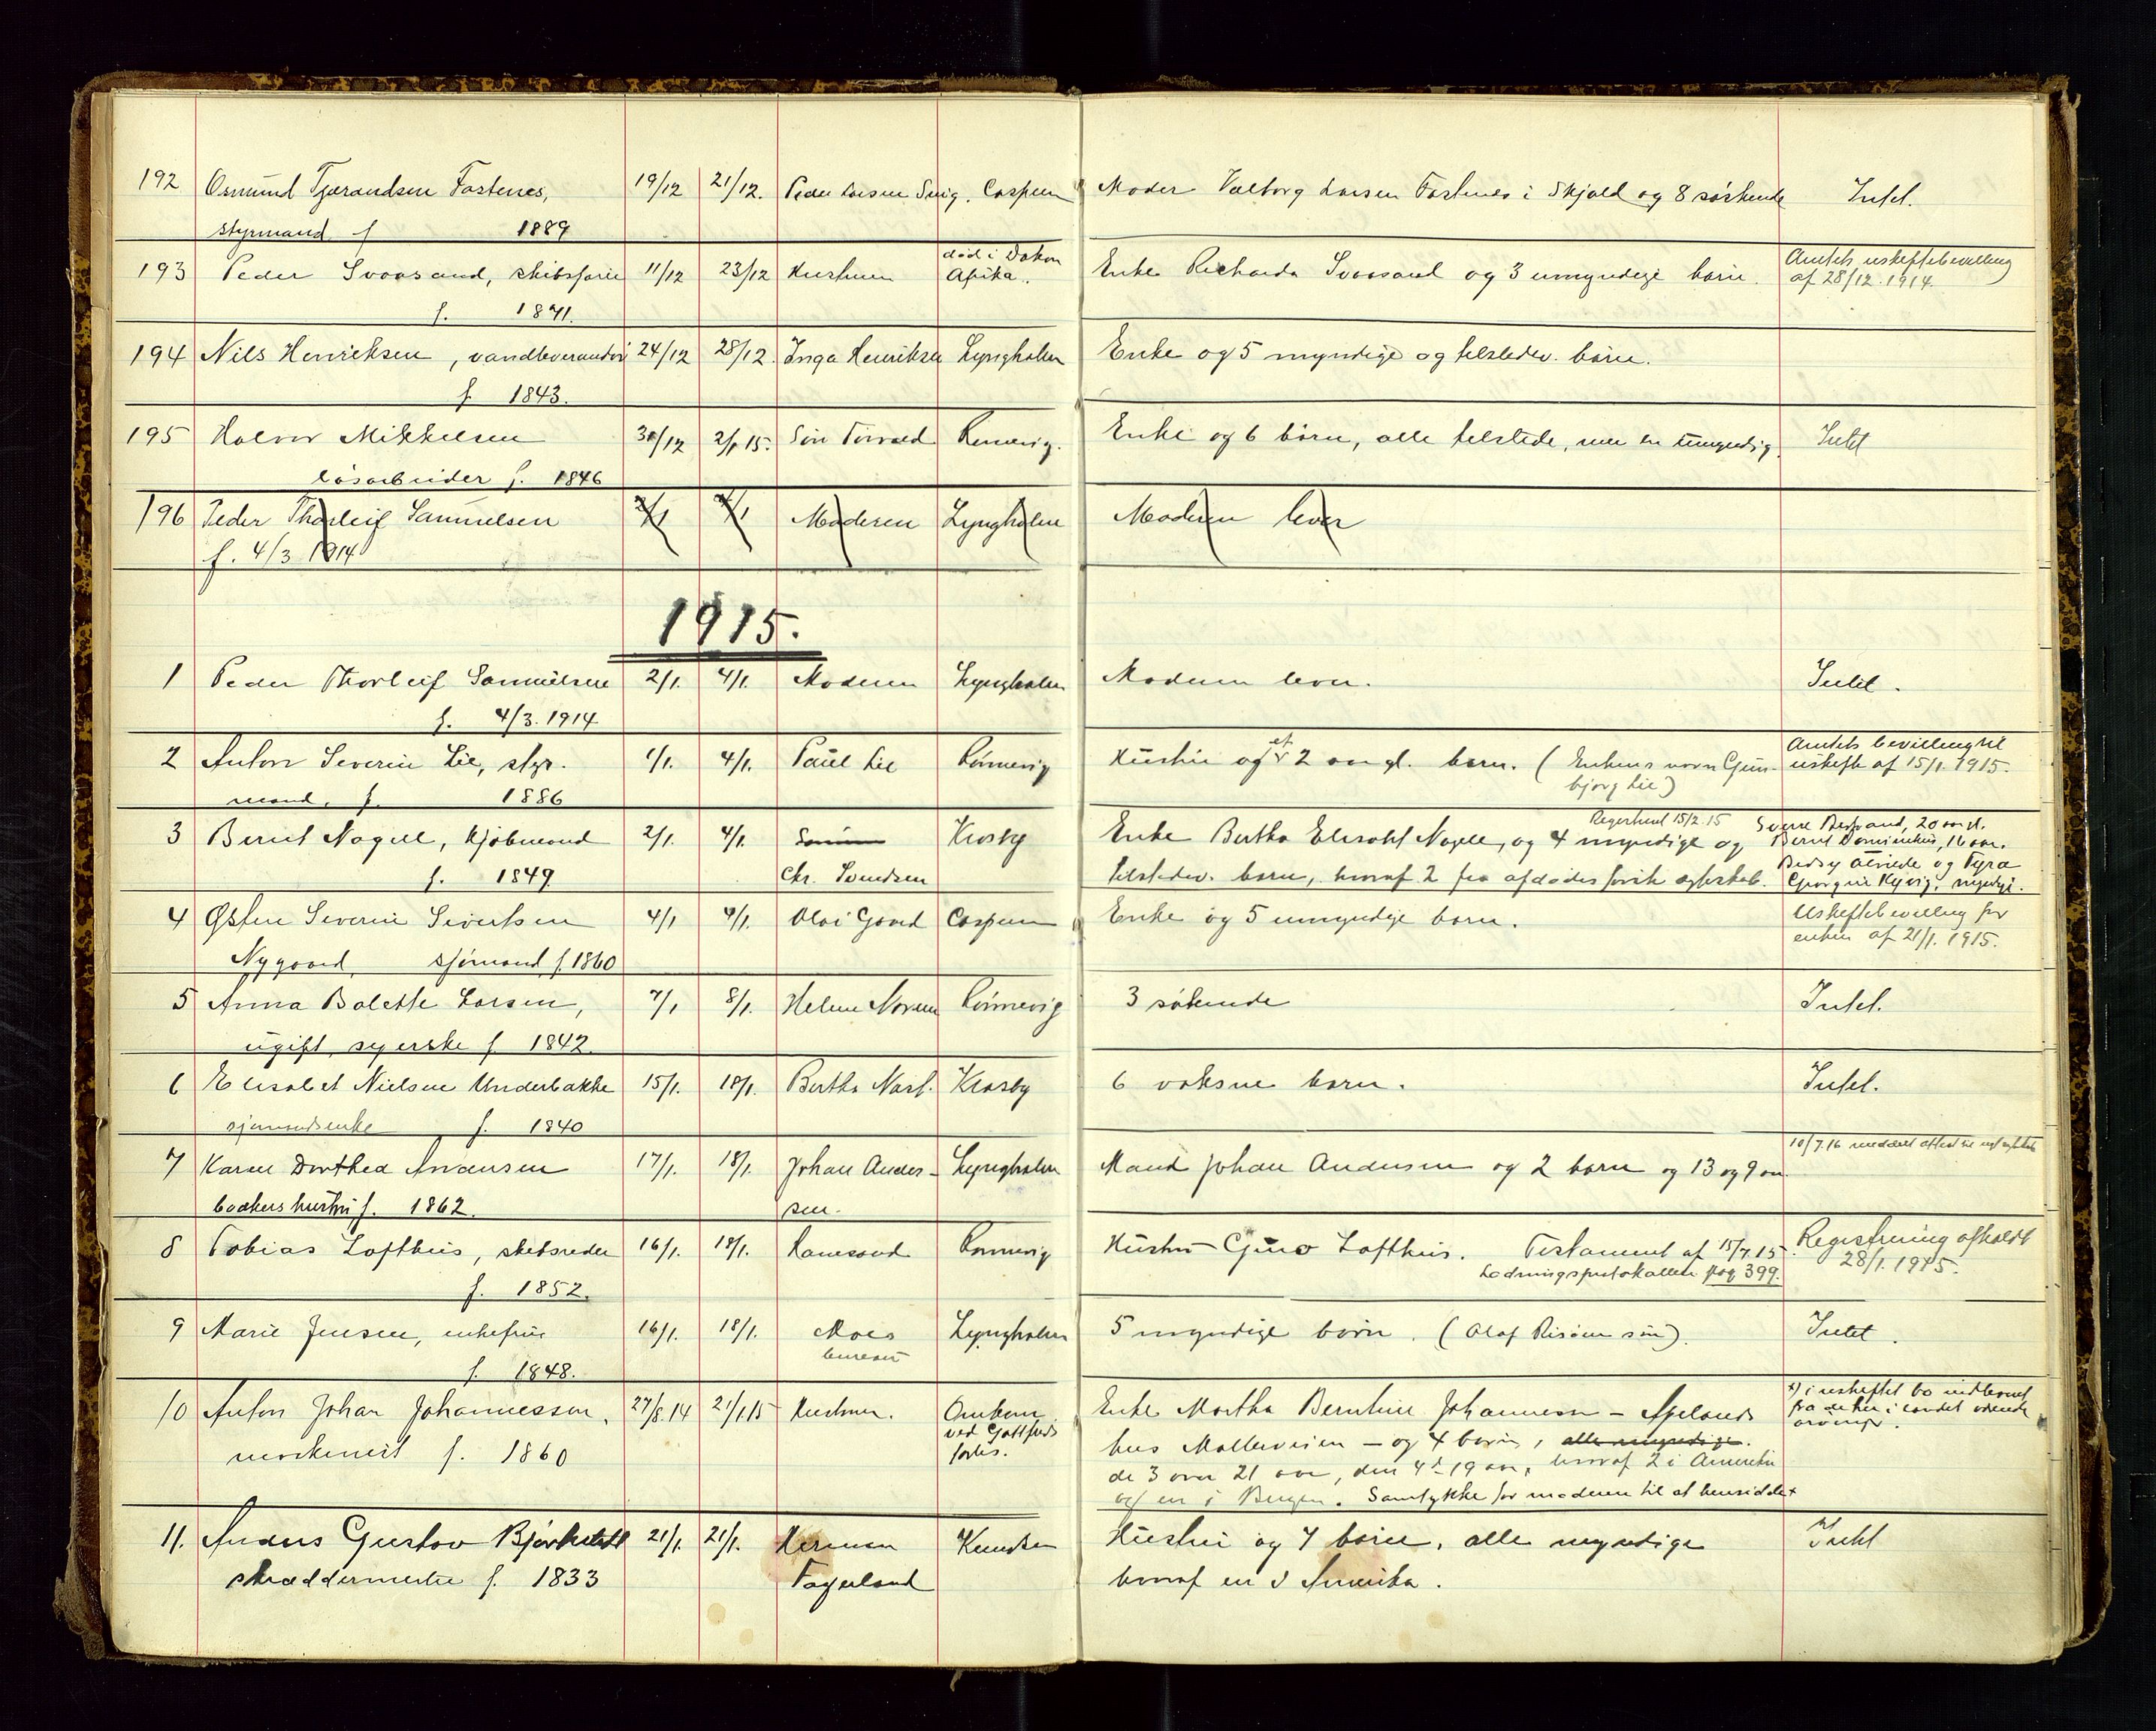 192 Osmund Tjerandsen Fastenes, 19/12 21/12. Peder Larsen Snig. Caspem Moder Valborg Larsen Fastenes i Skjold og 8 söskende Intet.
styrmand f 1889
193 Peder Svaasand, skibsförer 11/12 23/12 Hustruen død i Dakar Afrika. Enke Richarda Svaasand og 3 umyndige børn. Amtets uskiftebevilling
af 28/12.1914.
f. 1871.
194 Nils Henriksen, vandleverandør 24/12 28/12. Inga Henriksen Lyngholm Enke og 5 myndige og tilstedev. børn.
f. 1843.
195 Halvor Mikkelsen 30/12 2/1 15. Søn Torvald Rønnevig. Enke og 6 börn, alle tilstede, men en umyndig. Intet
løsarbeider f. 1846
196 Peder Thorleif Samuelsen 2/1 4/1 Moderen Lyngholm Moderen lever
f. 4/3 1914
1915.
1 Peder Thorleif Samuelsen 2/1. 4/1. Moderen Lyngholm Moderen lever. Intet.
f. 4/3.1914
2 Anton Severin Lie, styr- 1/1. 4/1. Paul Lie Rönnevig Hustru og et 2 aar gl. barn. (Enkens navn Gun- Amtets bevilling til
uskifte af 15/1.1915.
mand, f. 1886 bjørg Lie)
3 Bernt Nagell, kjøbmand 2/1. 4/1. Krosby Enke Bertha Elisabet Nagell, og 4 myndige og Registrert 15/2.15
f. 1849 Chr. Svendsen tilstedev. børn, hvoraf 2 fra afdødes første ægteskab.
Bernt Dominikus, 16 aar.
og Tyra
myndige.
4 Østen Severin Sivertsen 4/1 4/1. Olai Gaard Caspem Enke og 5 umyndige børn. Uskiftebevilling for
enken af 21/1.1915.
Nygaard, sjömand f. 1860
5 Anna Bolette Larsen, 7/1 8/1. Helene Rönnevig 3 søskende Intet.
ugift, syerske f. 1842.
6 Elisabet Nielsen Underbakke 15/1. 18/1. Bertha Krosby 6 voksne børn. Intet.
sjømandsenke f. 1840
7 Karen Dorthea Andersen 17/1. 18/1. Johan Ander- Lyngholm Mand Johan Andersen og 2 børn og 13 og 9 aar. 10/7.16 meddelt attest
baakers hustru f. 1862. sen.
8 Tobias Lofthus, skibsreder 16/1. 18/1. Rønnevig Hustru Gina Lofthus. Testament af 15/7.15. Registrering afholdt
28/1.1915.
f. 1852. Lodningsprotokollen pag 399.
9 Marie Jensen, enkefru 16/1. 18/1. Moes Lyngholm 5 myndige börn. (Olaf Risöen sön). Intet.
f. 1848. bureau
10 Anton Johan Johannessen, 27/8.14 21/1.15 Hustruen. Omkom Enke Martha Berntine Johannessen - Apelands x) i uskiftet bo indleveret
maskinist f. 1860 ved hus Møllerveien - og 4 børn, alle myndige. fra i landet værende
forlis. de 3 over 21 aar, den 4de 19 aar, hvoraf 2 i Amerika arvinger.
og en i Bergen. Samtykke for moderen til at hensidde x
11. Anders Gustav 21/1. 21/1. Herman Knudsen Hustru og 7 børn, alle myndige Intet
skræddermester f. 1833 Fagerland hvoraf en i Amerika.